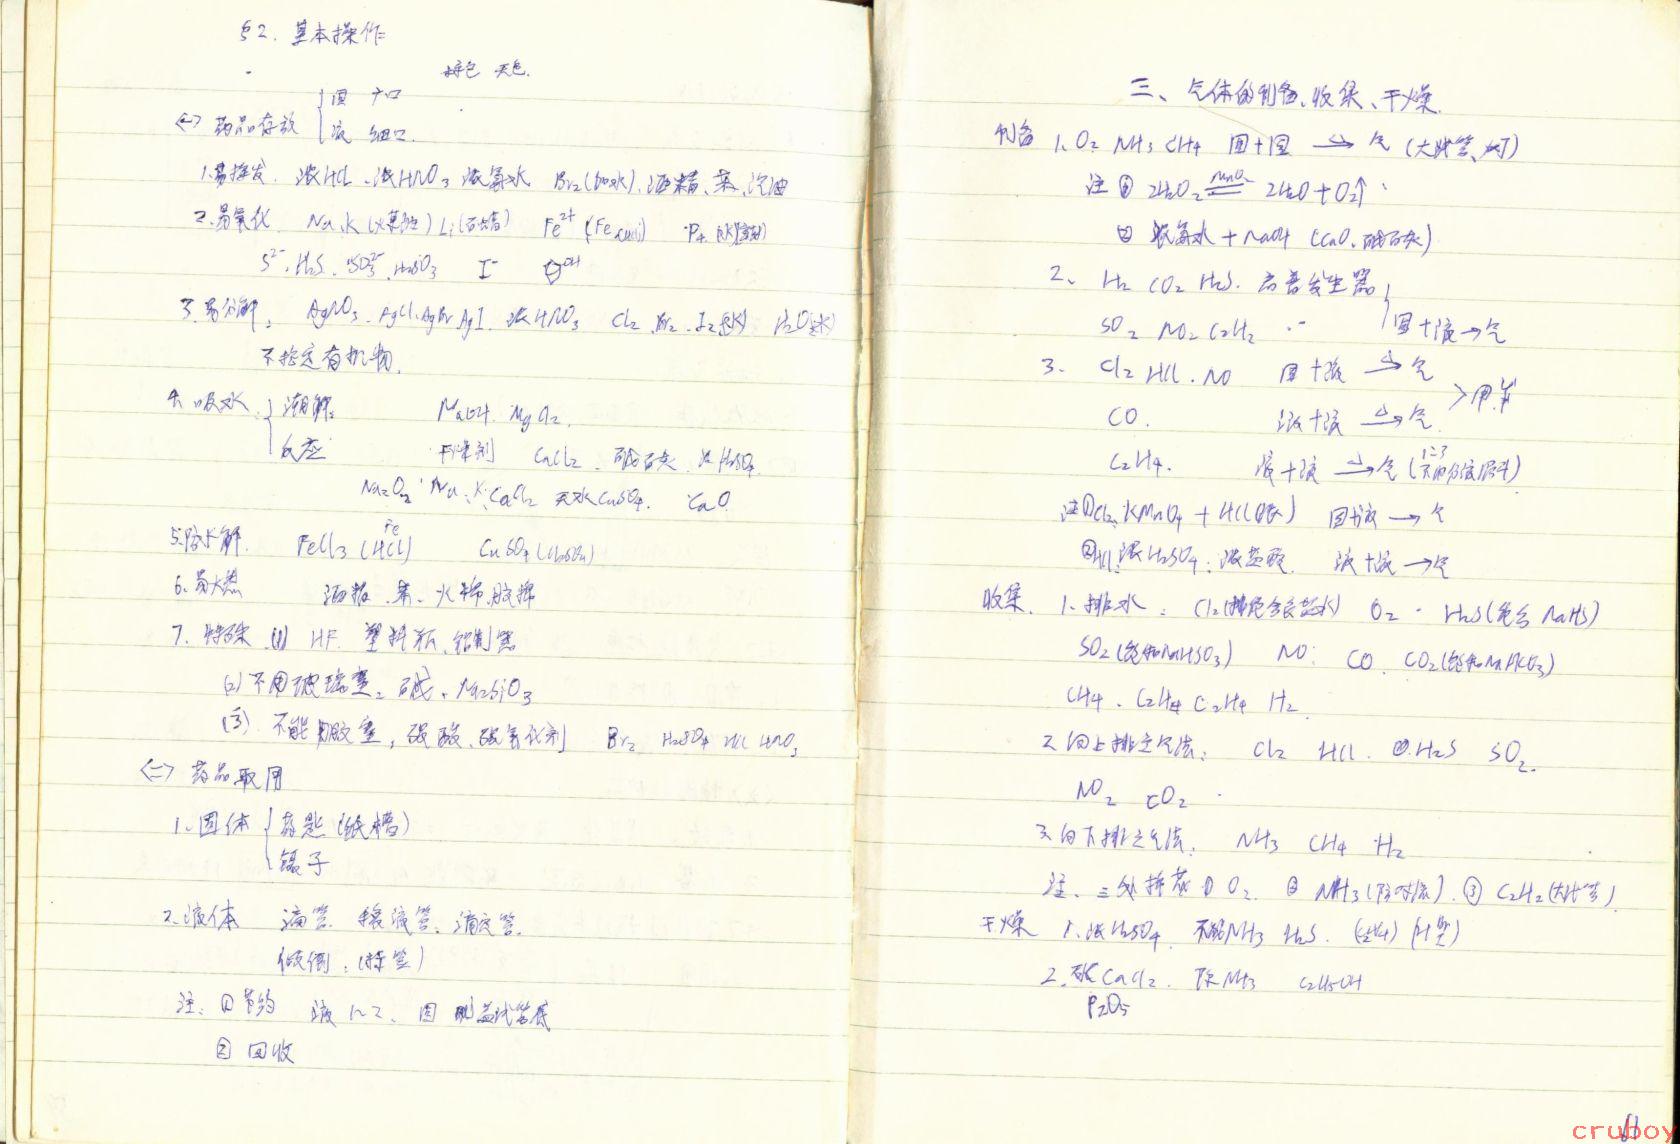 §2. 基本操作
棕色 无色.
<一> 药品存放 { 固 广口
液 细口
1.易挥发. 浓HCl、浓HNO3 浓氨水 Br2(加水). 酒精、苯、汽油
2.易氧化 Na、K(煤油) Li(石蜡) Fe2+ P4
S2-、H2S、SO32-、H2SO3 I- OH
3.易分解: AgNO3、AgCl、AgBr、AgI、浓HNO3 Cl2、Br2、I2
不稳定有机物.
4.吸水 { 潮解: NaOH. MgCl2.
反应 干燥剂 CaCl2、碱石灰、浓H2SO4
Na2O2 Na、K、CaCl2 无水CuSO4. CaO
5.防水解. FeCl3 (HCl) Fe CuSO4 (H2SO4)
6.易燃 酒精、苯、火棉、胶棉
7.特殊 (1) HF. 塑料瓶、铅制器
(2) 不用玻璃塞: 碱、Na2SiO3
(3) 不能用胶塞: 强酸、强氧化剂 Br2 H2SO4 HCl HNO3
<二> 药品取用
1.固体 { 药匙 (纸槽)
镊子
2.液体 滴管. 移液管、滴定管.
倾倒:
注: ①节约 液1~2、固 盖试管底
② 回收
三、气体的制备、收集、干燥.
制备 1. O2 NH3 CH4 固+固 →△ 气 (大试管、灯)
注 ① 2H2O2 =MnO2= 2H2O+O2↑
② 浓氨水+NaOH (CaO、碱石灰)
2. H2 CO2 H2S. 启普发生器
SO2 NO2 C2H2 } 固+液→气
3. Cl2 HCl、NO 固+液 →△ 气
CO. 液+液 →△ 气
C2H4. 液+液 →△ 气 (不用分液漏斗) 1:3
注①Cl2: KMnO4 + HCl(浓) 固+液 → 气
②HCl: 浓H2SO4: 浓盐酸. 液+液→气
收集. 1.排水: Cl2(排饱和食盐水) O2 H2S(饱和NaHS)
SO2(饱和NaHSO3) NO: CO CO2(饱和NaHCO3)
CH4. C2H4 C2H4 H2.
2.向上排空气法: Cl2 HCl. H2S SO2.
NO2 CO2
3.向下排空气法: NH3 CH4 H2
注、三处棉花 ① O2. ② NH3(防对流). ③ C2H2(大试管).
干燥 1.浓H2SO4. 不能NH3 H2S.
2. CaCl2. 除NH3 C2H5OH
P2O5
cruboy